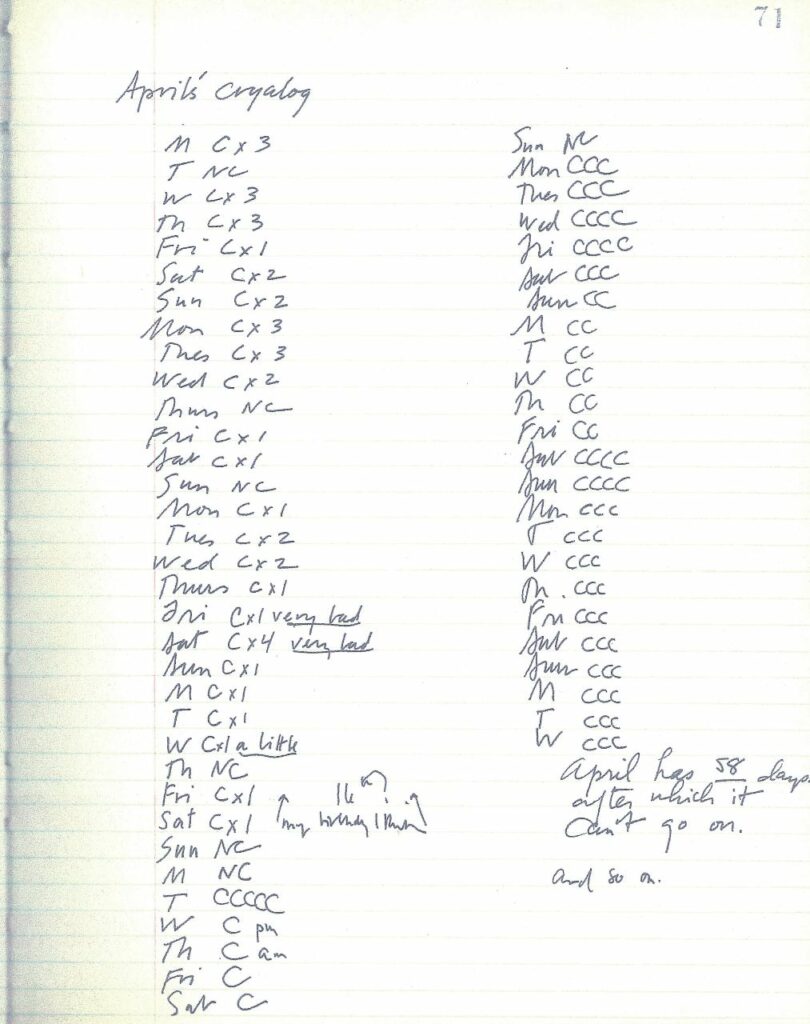 71
April's Cryalog
M Cx3
T NC
W Cx3
Th Cx3
Fri Cx1
Sat Cx2
Sun Cx2
Mon Cx3
Thes Cx3
Wed Cx2
Thurs NC
Fri Cx1
Sat Cx1
Sun NC
Mon Cx1
Tues Cx2
Wed Cx2
Thurs Cx1
Fri Cx1 very bad
Sat Cx4 very bad
Sun Cx1
M Cx1
T Cx1
W Cx1 a little
Th NC
Fri Cx1 16?
Sat Cx1 my birthday I think
Sun NC
M NC
T CCCCC
W C pm
Th C am
Fri C
Sat C
Sun NC
Mon CCC
Thes CCC
Wed CCCC
Fri CCCC
Sat CCC
Sun CC
M CC
T CC
W CC
Th CC
Fri CC
Sat CCCC
Sun CCCC
Mon CCC
T CCC
W CCC
Th. CCC
Fri CCC
Sat CCC
Sun CCC
M CCC
T CCC
W CCC
April has 58 days
after which it
can't go on.
and so on.